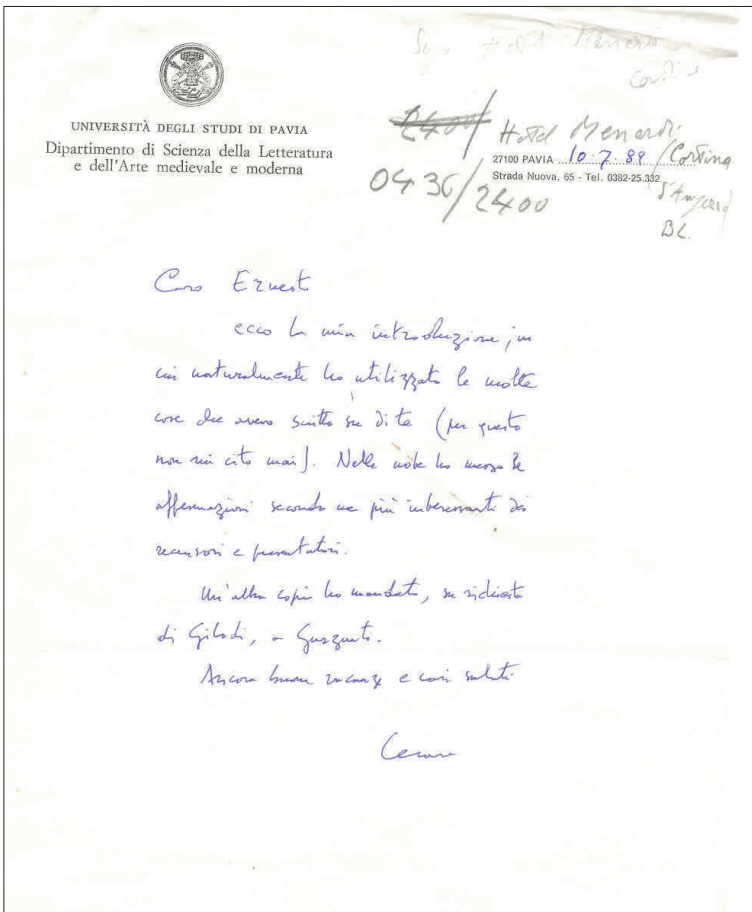 Hotel Menardi
Cortina
UNIVERSITÀ DEGLI STUDI DI PAVIA
Dipartimento di Scienza della Letteratura
e dell'Arte medievale e moderna
2400/ Hotel Menardi
27100 PAVIA 10.7.89 /Cortina
Strada Nuova, 65 - Tel. 0382-25.332
0436/2400
d'Ampezzo
BL.
Caro Ernest
ecco la mia introduzione, in
cui naturalmente ho utilizzato le molte
cose che avevo scritto su di te (per questo
non mi cito mai). Nelle note ho messo le
affermazioni secondo me più interessanti dei
recensori e presentatori.
Un'altra copia ho mandato, su richiesta
di Gilodi, a
Ancora buone vacanze e cari saluti
Cesare